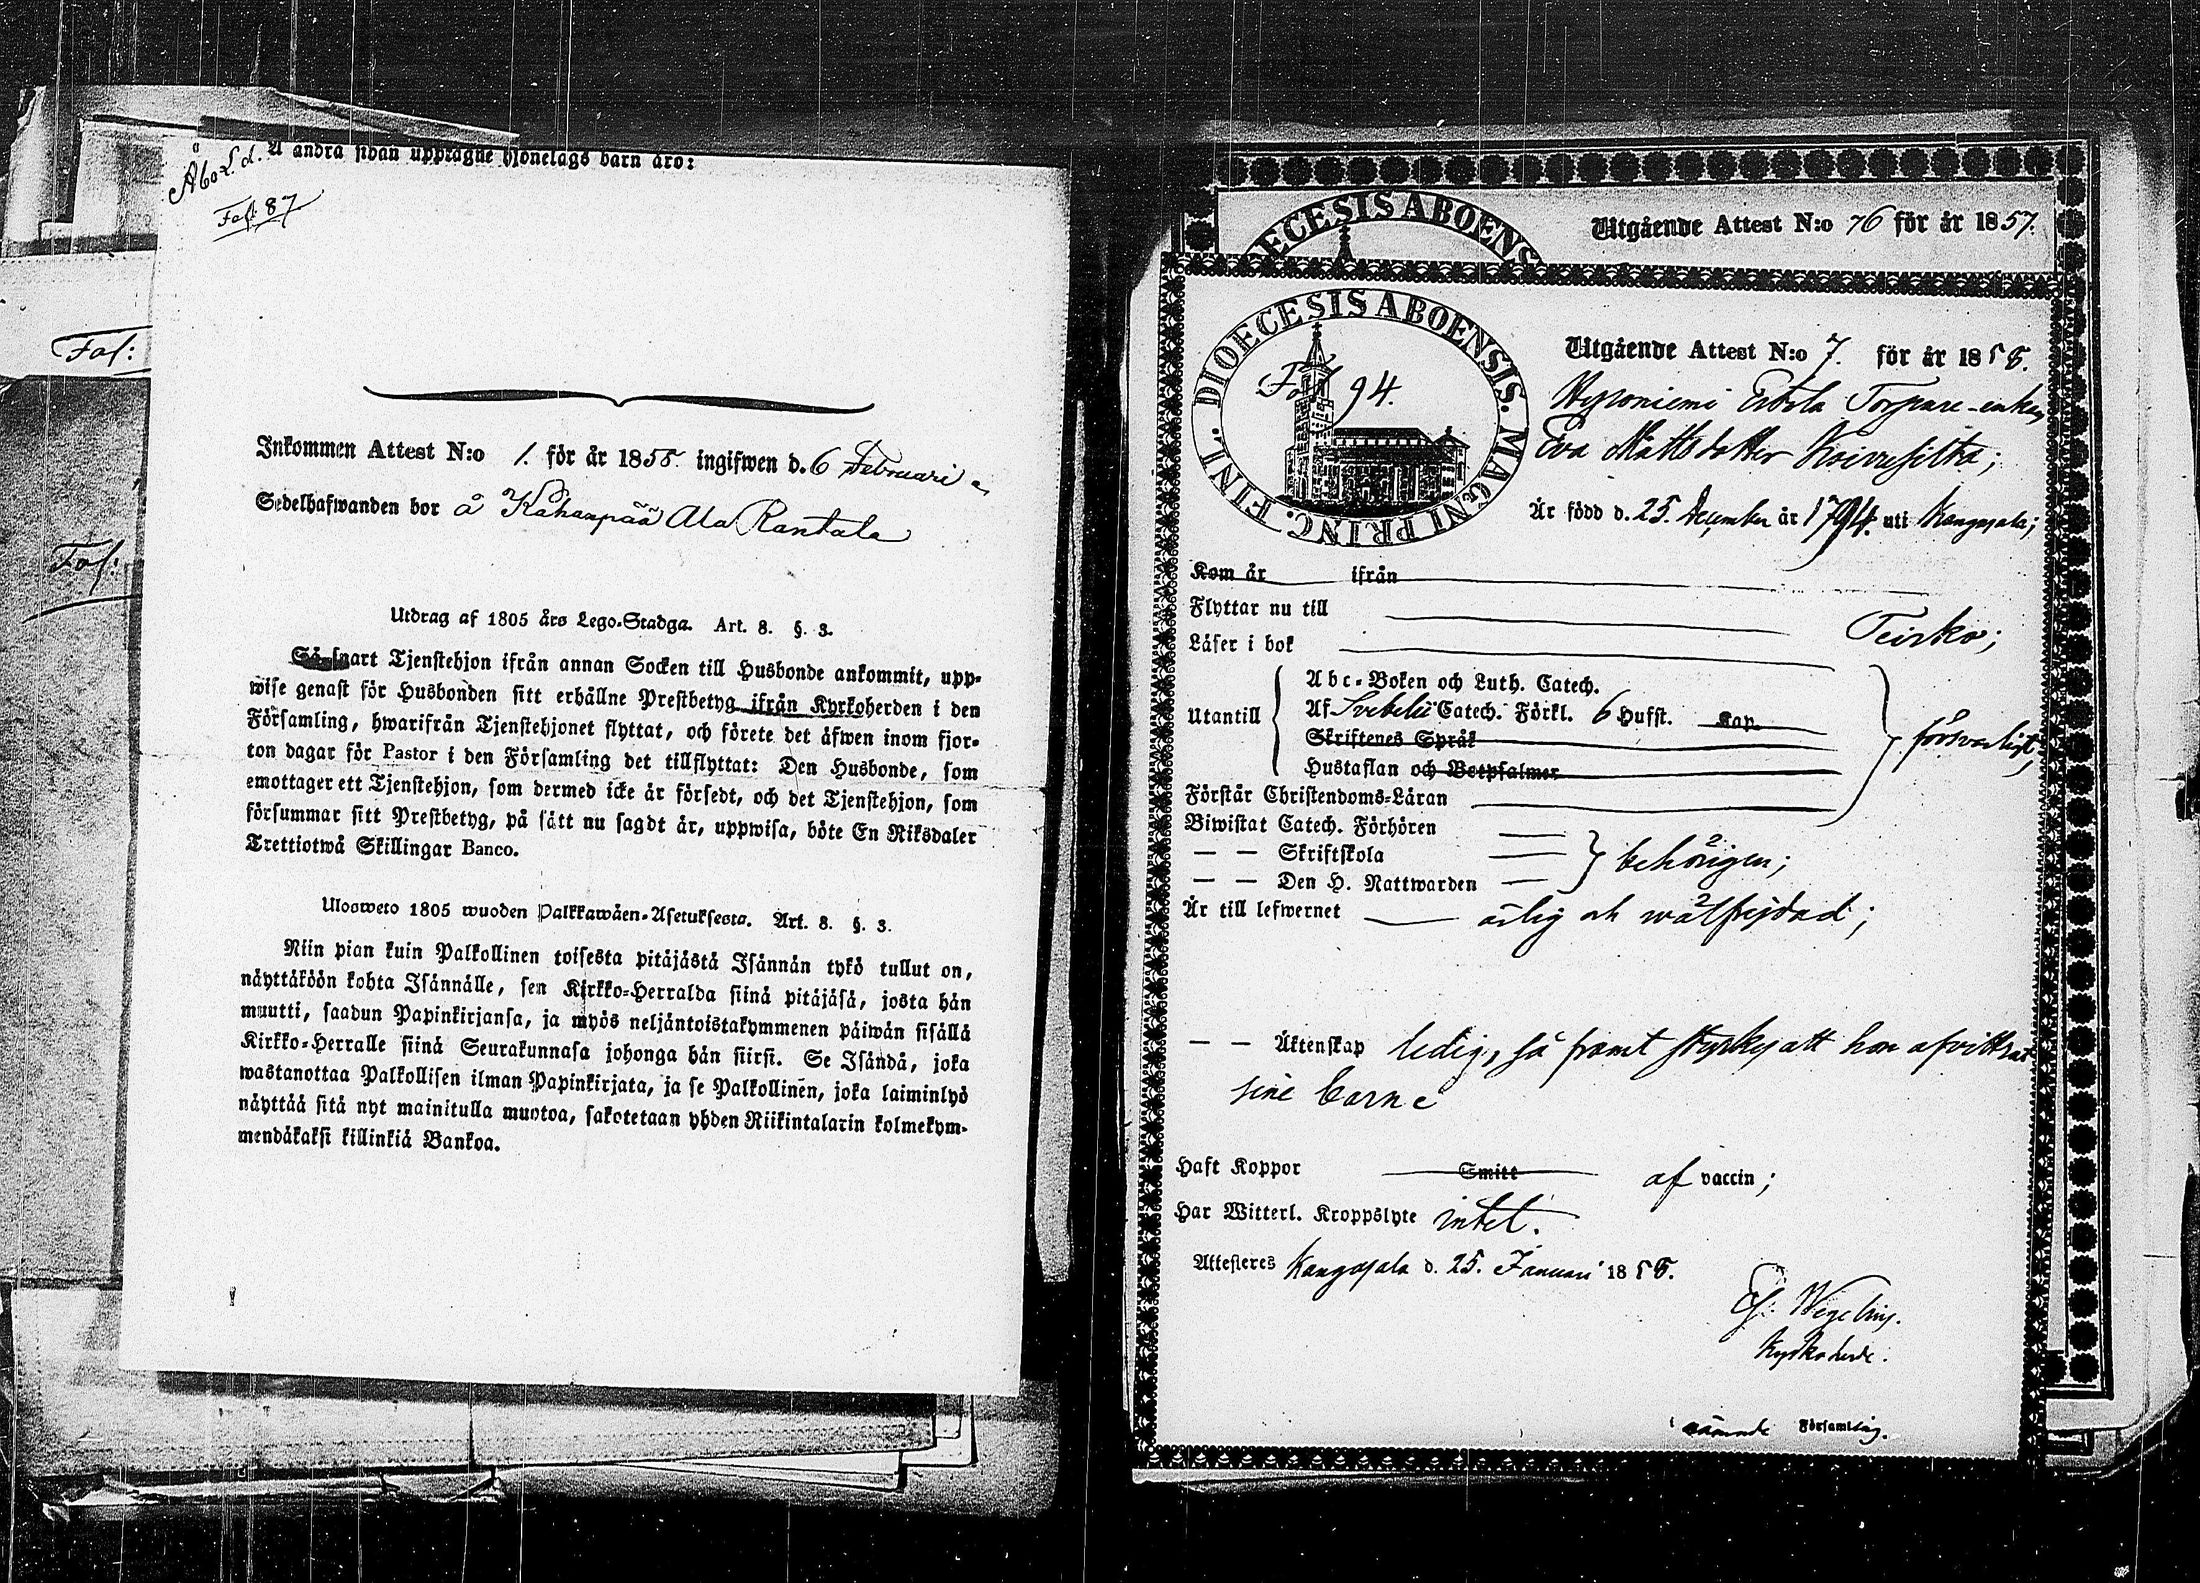 Åbo L. d. A andra sidan upptagne Hjonelags barn äro:
Fol. 87
Fol:
Fol:
Inkommen Attest N:o 1. för år 1858. ingifwen d. 6 Februari
Sedelhafwanden bor å Kähaapää Ala Rantala
Utdrag af 1805 års Lego-Stadga. Art. 8. §. 3.
Så snart Tjenstehjon ifrån annan Socken till Husbonde ankommit, upp-
wise genast för Husbonden sitt erhållne Prestbetyg ifrån Kyrkoherden i den
Församling, hwarifrån Tjenstehjonet flyttat, och förete det äfwen inom fjor-
ton dagar för Pastor i den Församling det tillflyttat: Den Husbonde, som
emottager ett Tjenstehjon, som dermed icke är försedt, och det Tjenstehjon, som
försummar sitt Prestbetyg, på sätt nu sagdt är, uppwisa, böte En Riksdaler
Trettiotwå Skillingar Banco.
Ulosweto 1805 wuoden Palkkawäen-Asetuksesta. Art. 8. §. 3.
Niin pian kuin Palkollinen toisesta pitäjästä Isännän tykö tullut on,
näyttäköön kohta Isännälle, sen Kirkko-Herralda siinä pitäjäsä, josta hän
muutti, saadun Papinkirjansa, ja myös neljäntoistakymmenen päiwän sisällä
Kirkko-Herralle siinä Seurakunnasa johonga hän siirsi. Se Isändä, joka
wastanottaa Palkollisen ilman Papinkirjata, ja se Palkollinen, joka laiminlyö
näyttää sitä nyt mainitulla muotoa, sakotetaan yhden Riikintalarin kolmekym-
mendäkaksi killinkiä Bankoa.
DIOECESIS ABOENS
Utgående Attest N:o 76 för år 1857.
DIOECESIS ABOENSIS. MAGNI PRINC. FINL.
Fol 94.
Utgående Attest N:o 7. för år 1858.
Hyroniemi Erkola Torpare-enkan
Eva Mattsdotter Koivusilta;
Är född d. 25. December år 1794. uti Kangasala;
Kom år ifrån
Flyttar nu till Teisko;
Läser i bok
Utantill
Abc-Boken och Luth. Catech.
Af Svebelii Catech. Förkl. 6 Hufst. Kap.
Skriftenes Språk
Hustaflan och Botpsalmer
försvarligt;
Förstår Christendoms-Läran
Biwistat Catech. Förhören
— — Skriftskola
— — Den H. Nattwarden
behörigen;
Är till lefwernet ärlig och wälfrejdad;
— — Äktenskap ledig, så framt styrkes att hon afvittrat
sine barn
Haft Koppor Smitt af vaccin;
Har Witterl. Kroppslyte intet.
Attesteres Kangasala d. 25. Januari 1858.
Wegelius.
Kyrkoherde.
i nämnde Församling.